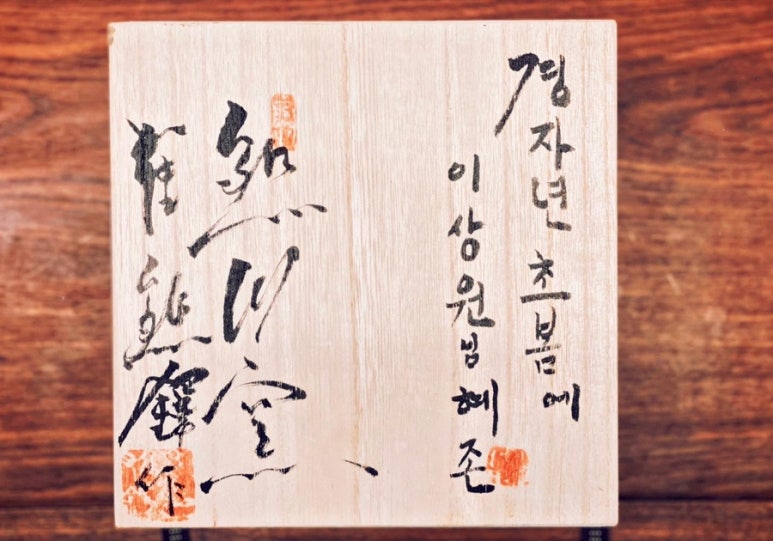 경자년 초봄에
이상원님 혜존
熊川窯
崔熊鐸作